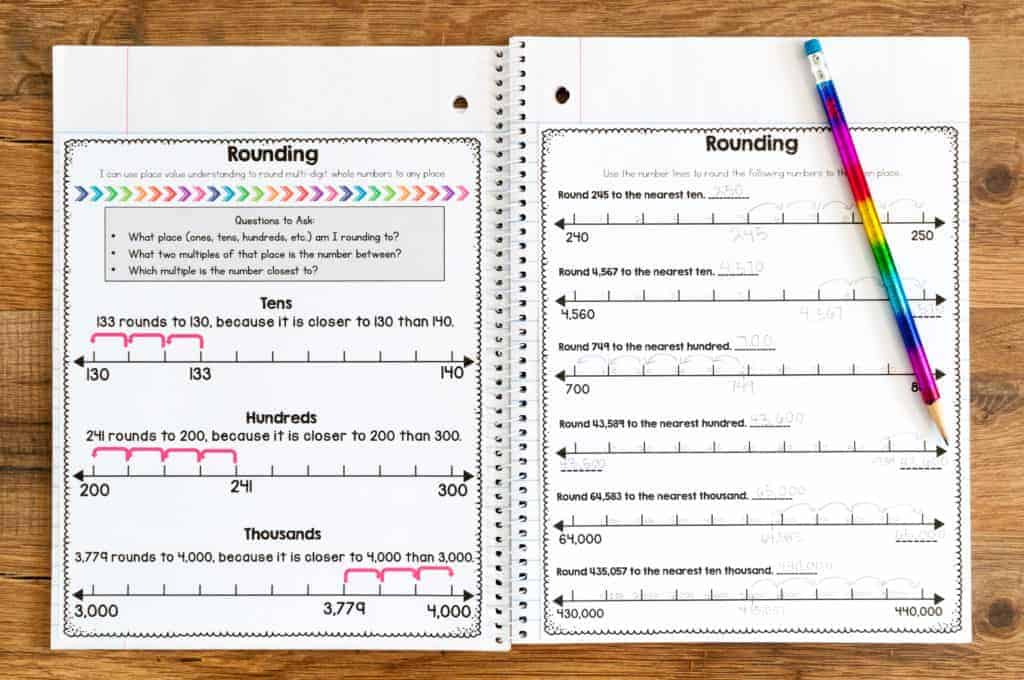 Rounding
I can use place value understanding to round multi-digit whole numbers to any place.
Questions to Ask:
• What place (ones, tens, hundreds, etc.) am I rounding to?
• What two multiples of that place is the number between?
• Which multiple is the number closest to?
Tens
133 rounds to 130, because it is closer to 130 than 140.
130 133 140
Hundreds
241 rounds to 200, because it is closer to 200 than 300.
200 241 300
Thousands
3,779 rounds to 4,000, because it is closer to 4,000 than 3,000.
3,000 3,779 4,000
Rounding
Use the number lines to round the following numbers to the place.
Round 245 to the nearest ten. 250
240 245 250
Round 4,567 to the nearest ten. 4,570
4,560 4,567
Round 749 to the nearest hundred. 700
700 749
Round 43,589 to the nearest hundred. 43,600
43,500 43,600
Round 64,583 to the nearest thousand. 65,000
64,000 64,583 65,000
Round 435,057 to the nearest ten thousand. 440,000
430,000 435,057 440,000